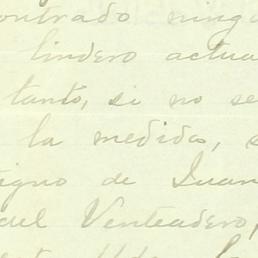 ontrado ning
lindero actua
tanto, si no se
la medida, s
signo de Juan
del Venteadero,